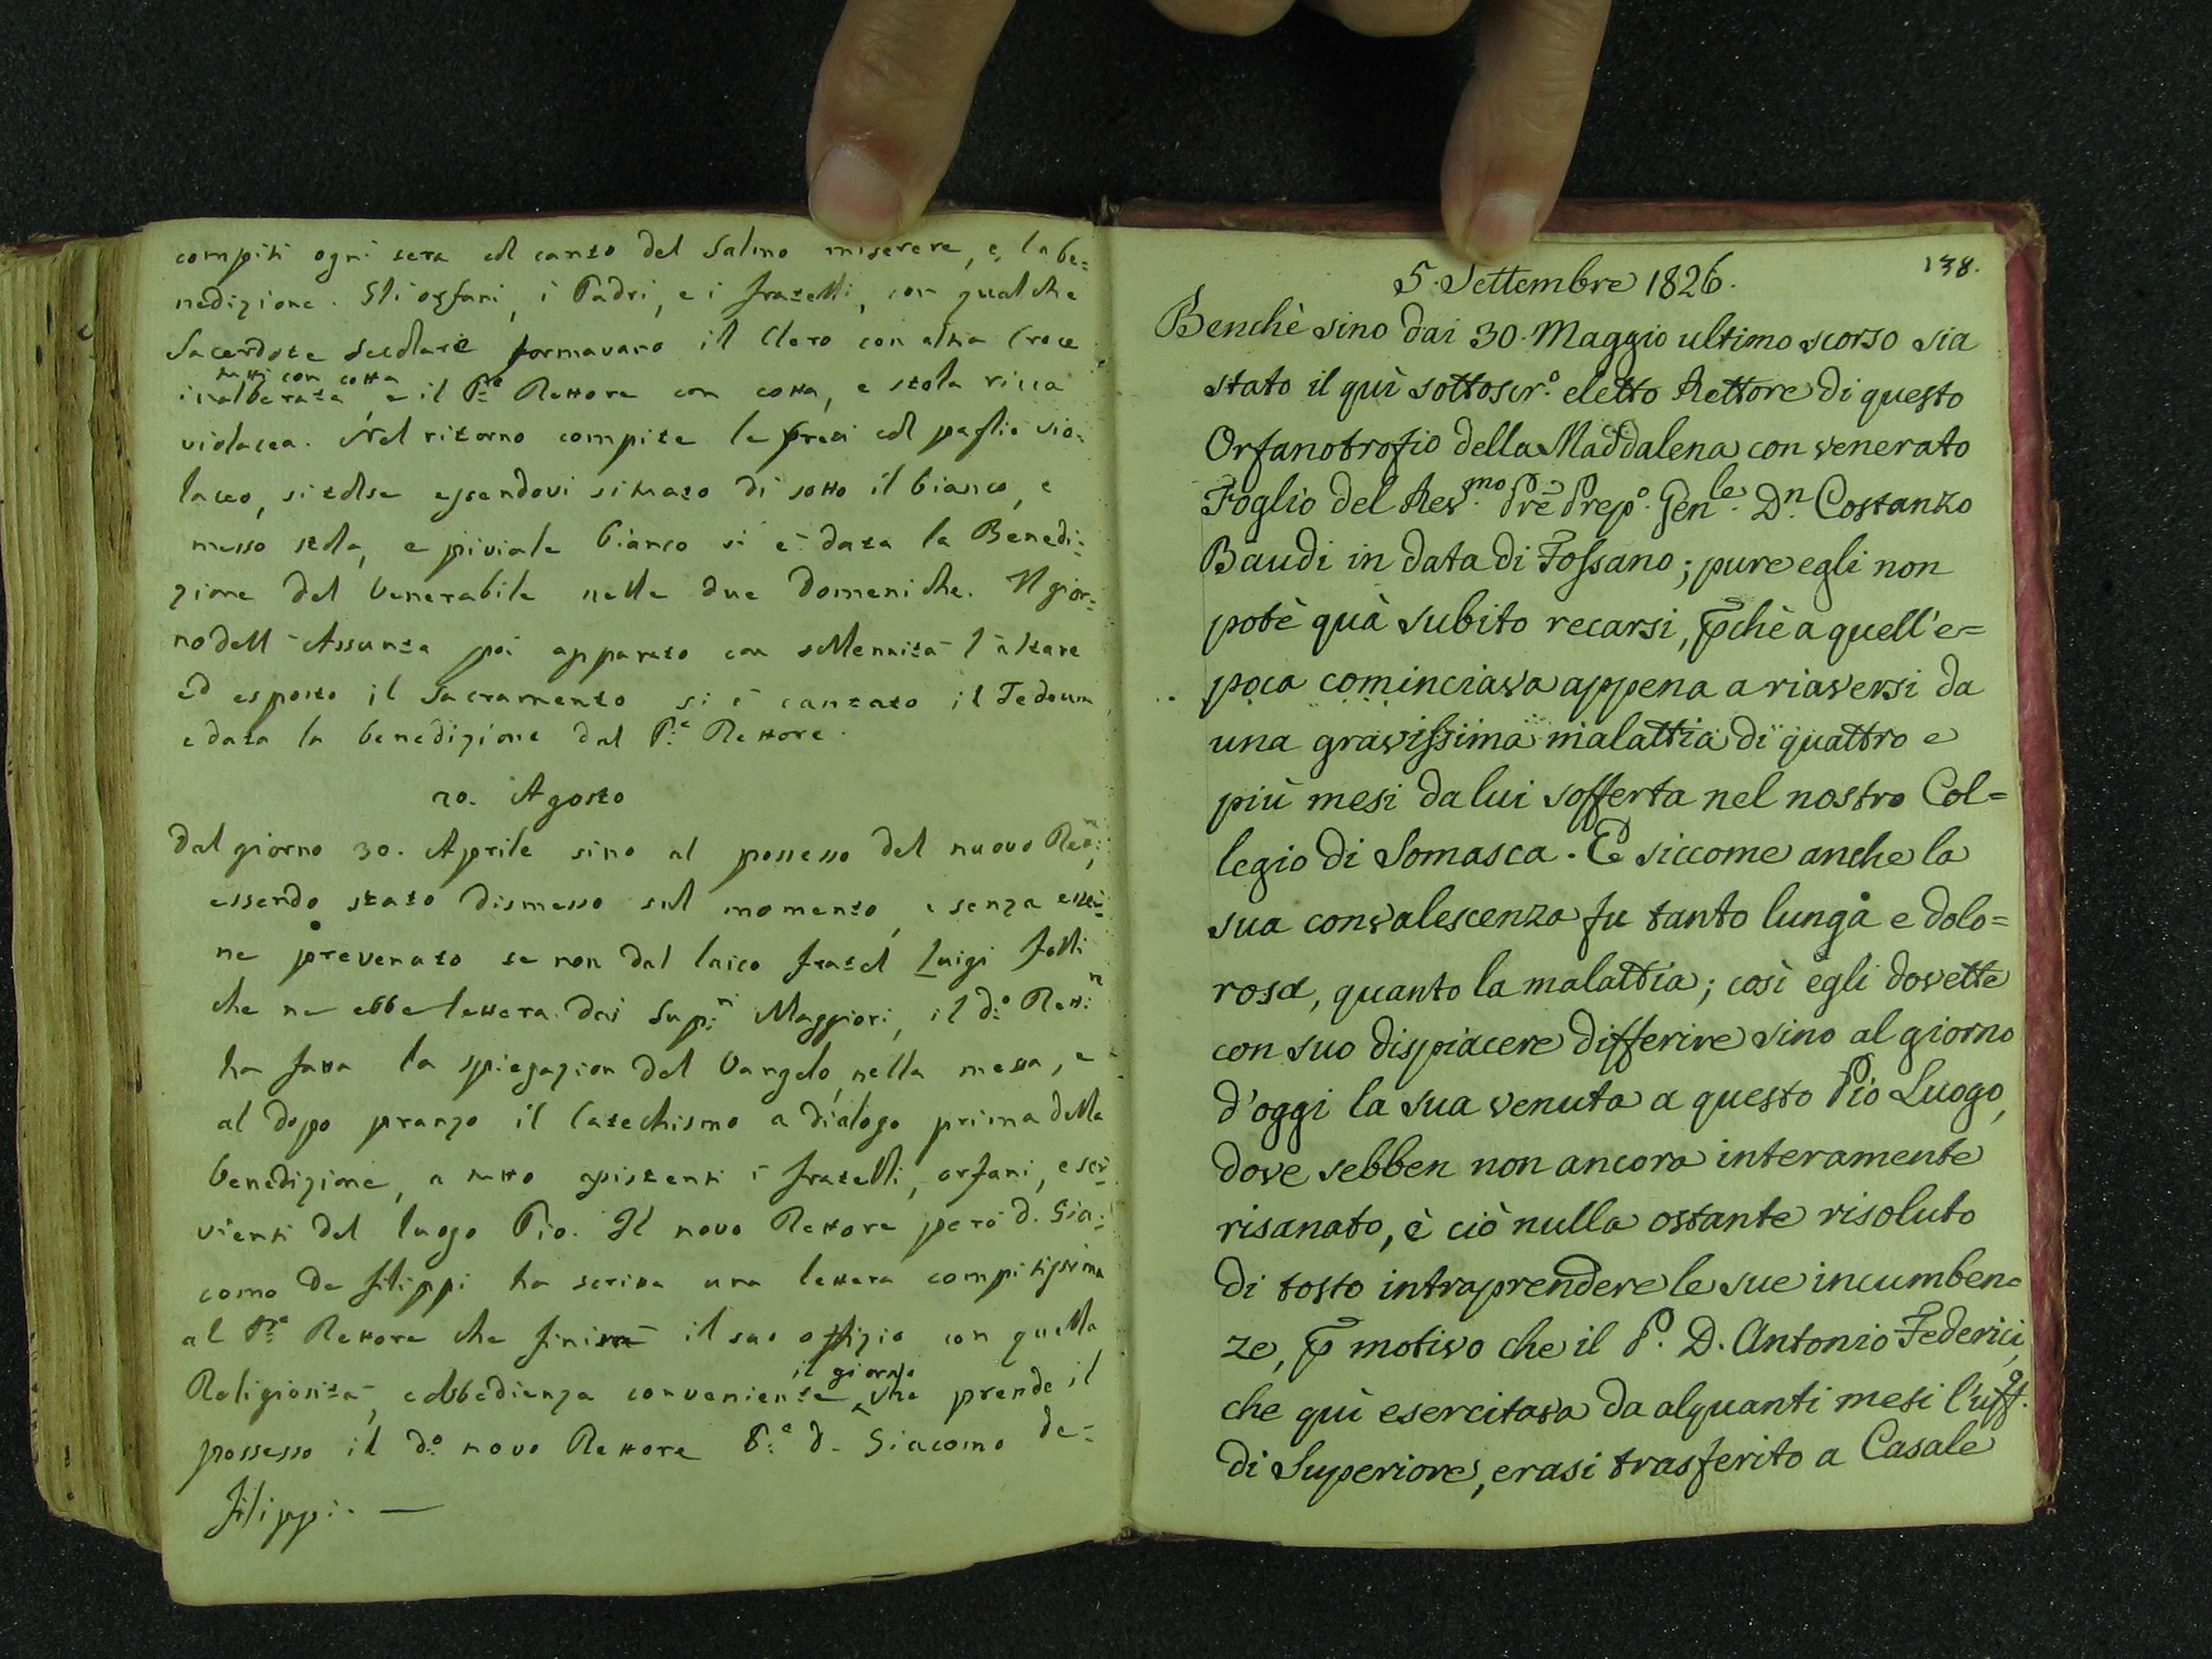 compiti ogni sera col canto del Salmo miserere, e, la be=
nedizione. Gli orfani, i Padri, e i fratelli, con qualche
Sacerdote secolare formavano il Clero con alta Croce
tutti con cotta
inalberata, e il P.e Rettore con cotta, e stola ricca
violacea. Nel ritorno compite le preci col paglio vio-
laceo, si tolse essendovi situato di sotto il bianco, e
messo stola, e piviale bianco si è data la Benedi=
zione del Venerabile nelle due Domeniche. Il gior=
no dell'Assunta poi apparato con sollennità l'altare
ed esposto il Sacramento si è cantato il Tedeum
e data la benedizione dal P.e Rettore.
20. Agosto
Dal giorno 30. Aprile sino al possesso del nuovo
essendo stato dismesso sul momento, e senza
ne prevenuto se non dal laico fratel Luigi
che ne ebbe lettera dai Sup.ri Maggiori, il d.o
ha fatta la spiegazion del Vangelo nella messa, e
al dopo pranzo il Catechismo a dialogo prima della
benedizione, a tutto assistenti i fratelli, orfani, e ser=
vienti del luogo Pio. Il novo Rettore però d. Gia=
como De Filippi ha scritta una lettera compitissima
al P.re Rettore che il suo offizio con quella
il giorno
Religiosità, e obbedienza conveniente che prende il
possesso il d.o novo Rettore P.e d. Giacomo de=
Filippi. —
138.
5. Settembre 1826.
Benchè sino dai 30. Maggio ultimo scorso sia
stato il quì sottoscr.o eletto Rettore di questo
Orfanotrofio della Maddalena con venerato
Foglio del Rev.mo Prē Prep.o Gen.le D.n Costanzo
Baudi in data di Fossano; pure egli non
potè quà subito recarsi, p̄chè a quell'e=
poca cominciava appena a riaversi da
una gravissima malattia di quattro e
più mesi da lui sofferta nel nostro Col=
legio di Somasca. E siccome anche la
sua convalescenza fu tanto lunga e dolo=
rosa, quanto la malattia; così egli dovette
con suo dispiacere differire sino al giorno
d'oggi la sua venuta a questo Pio Luogo,
dove sebben non ancora interamente
risanato, è ciò nulla ostante risoluto
di tosto intraprendere le sue incumben=
ze, p̄ motivo che il P. D. Antonio Federici,
che quì esercitava da alquanti mesi l'uff.o
di Superiore, erasi trasferito a Casale